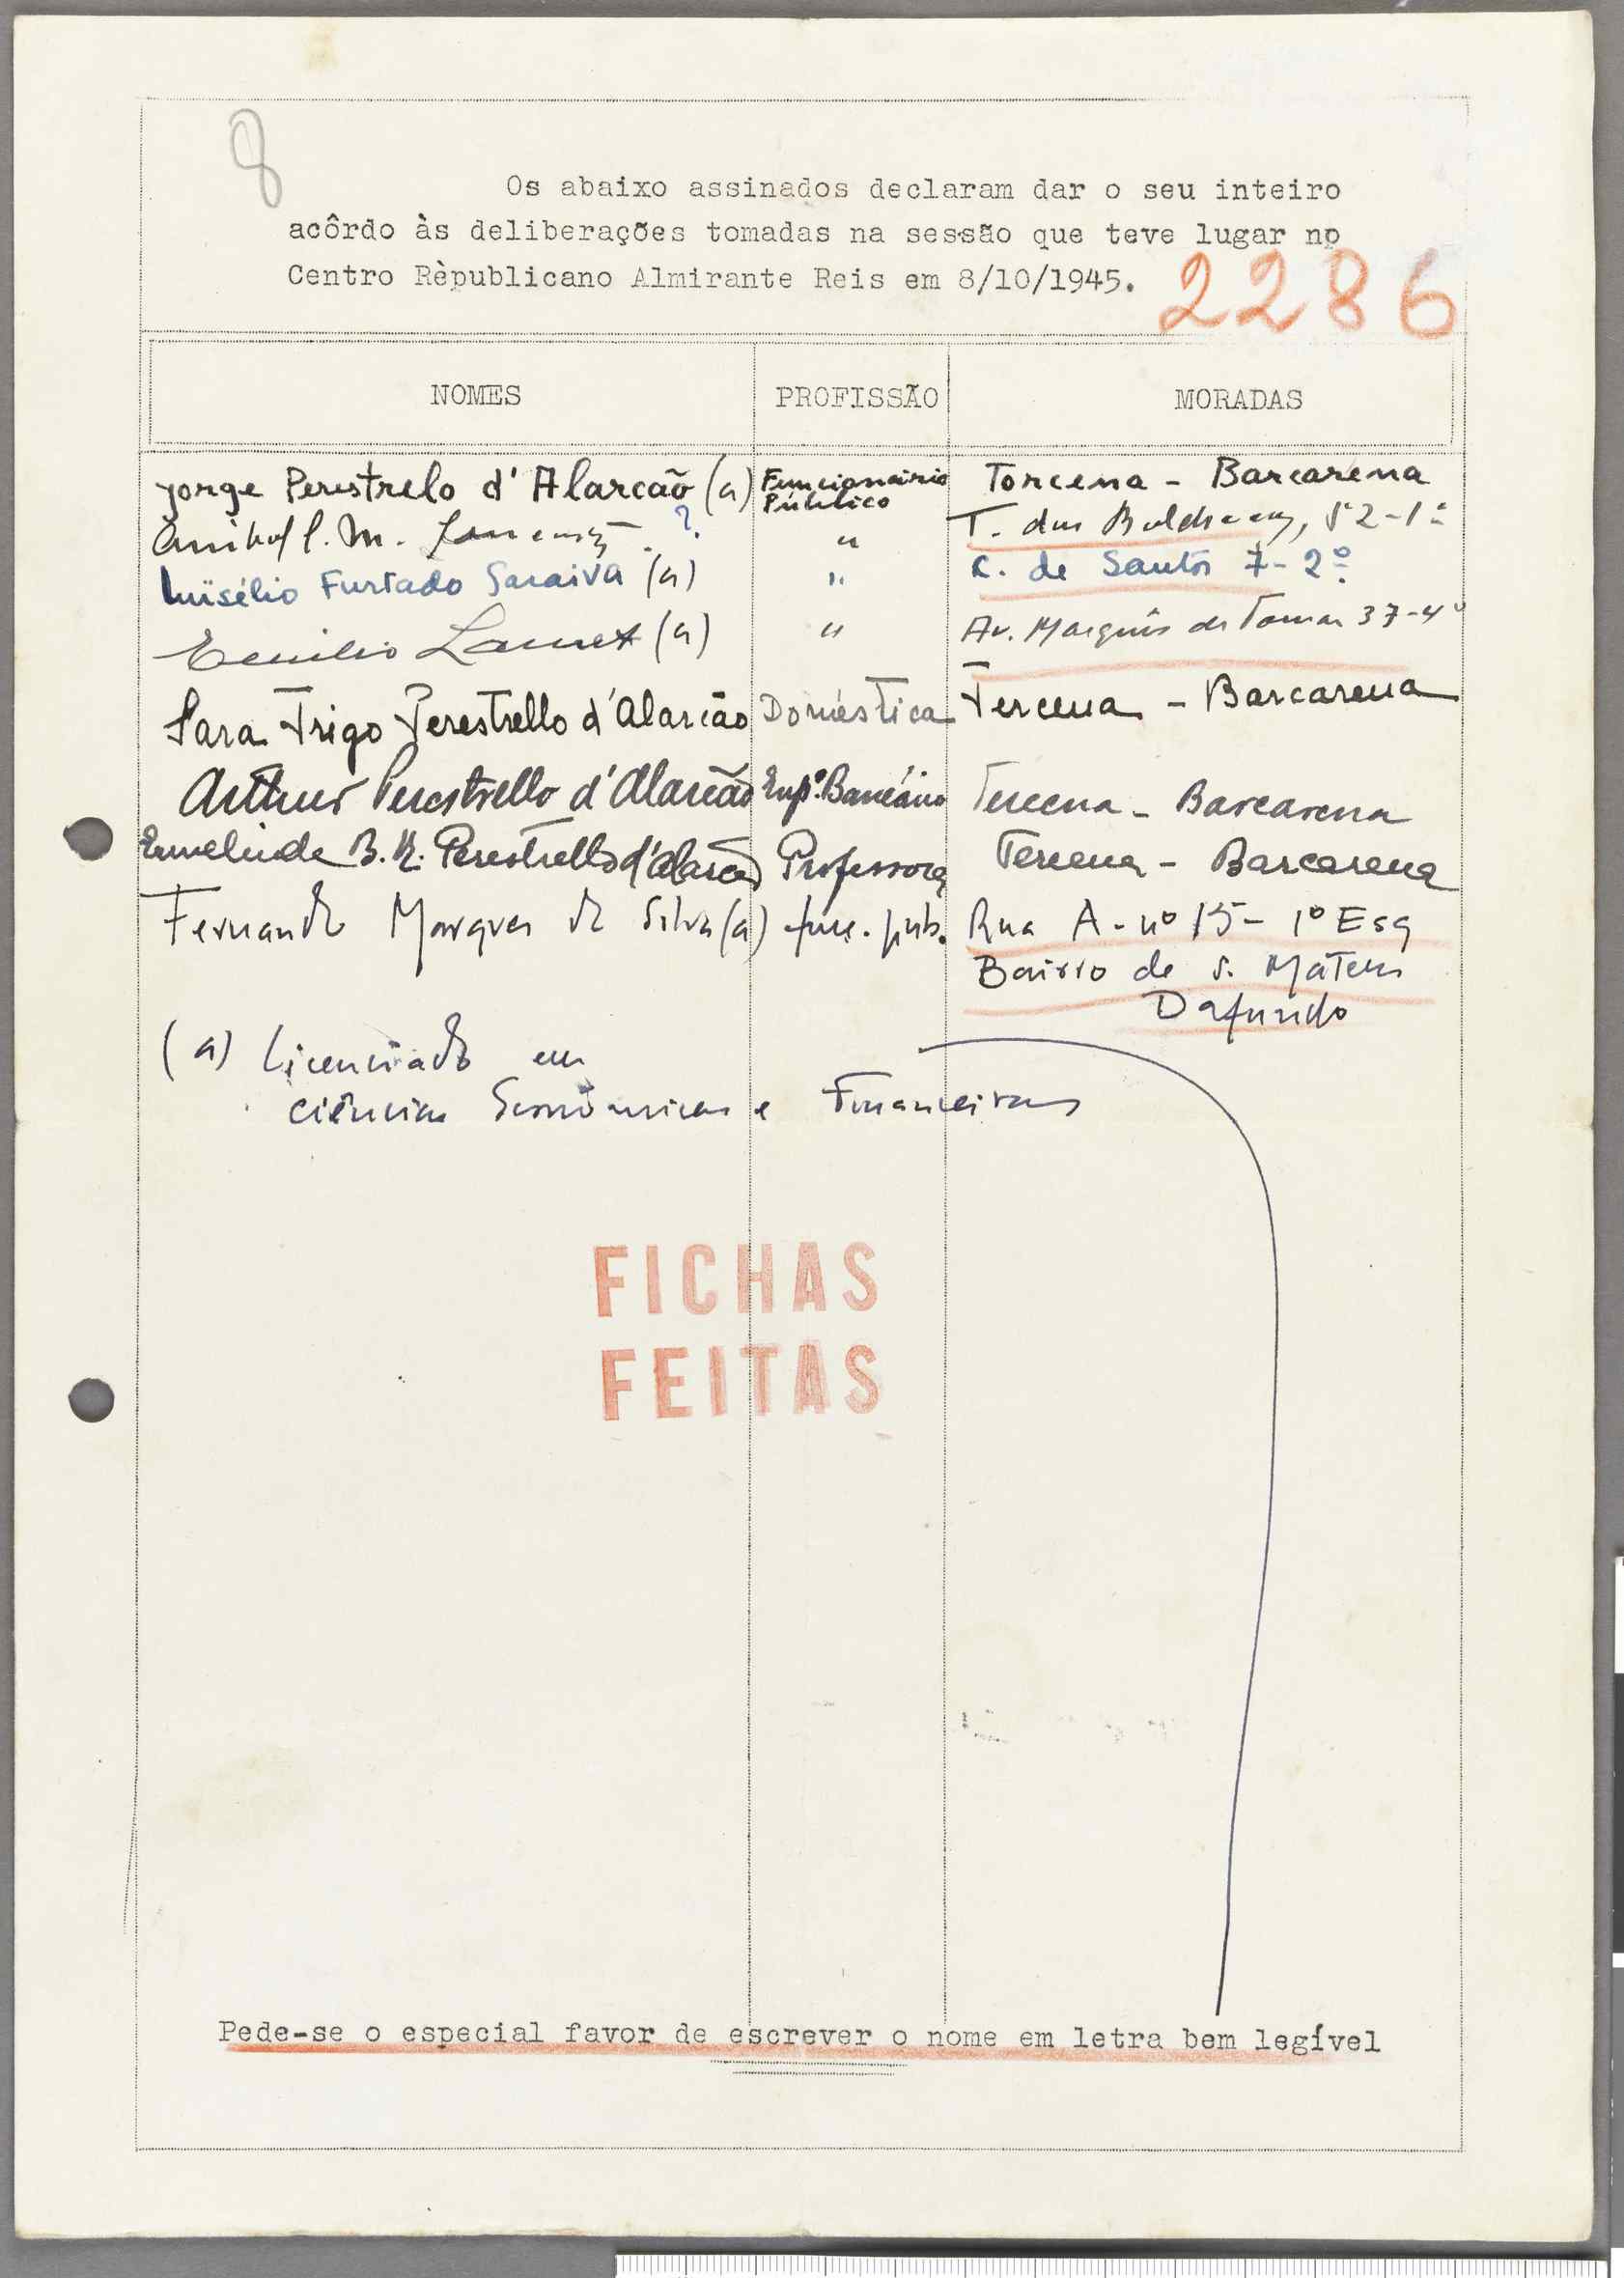 8
Os abaixo assinados declaram dar o seu inteiro
acôrdo às deliberações tomadas na sessão que teve lugar no
Centro Rèpublicano Almirante Reis em 8/10/1945.
2286
NOMES PROFISSÃO MORADAS
Jorge Perestrelo d'Alarcão (a) Funcionário Público Torcena - Barcarena
? " T. dos 52-1º
Furtado Saraiva (a) " C. de Santos 7-2º
Emilio (a) " Av. Marquês de Tomar 37-4º
Sara Trigo Perestrello d'Alarcão Doméstica Tercena - Barcarena
Arthur Perestrello d'Alarcão Emp.º Bancário Tercena - Barcarena
Ermelinda B. R. Perestrello d'Alarcão Professora Tercena - Barcarena
Fernando Marques da Silva (a) func. pub. Rua A - nº 15 - 1º Esq
Bairro de S. Mateus
Dafundo
(a) Licenciado em
Ciências Económicas e Financeiras
FICHAS
FEITAS
Pede-se o especial favor de escrever o nome em letra bem legível